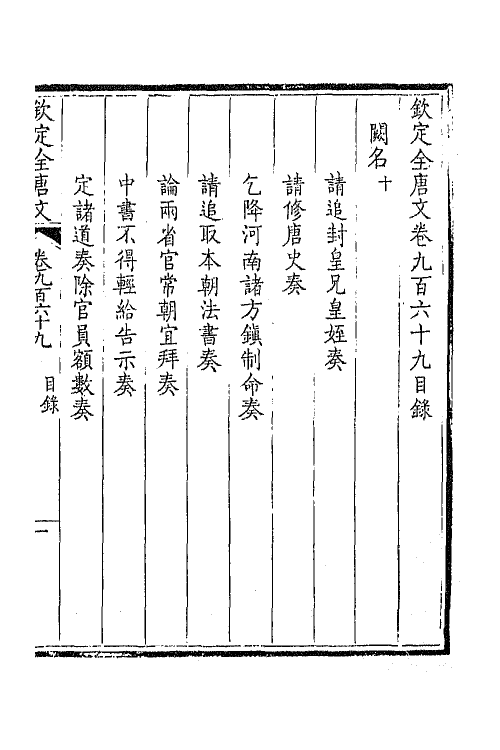 欽定全唐文卷九百六十九目錄
闕名十
請追封皇兄皇姪奏
請修唐史奏
乞降河南諸方鎮制命奏
請追取本朝法書奏
論兩省官常朝宜拜奏
中書不得輕給告示奏
定諸道奏除官員額數奏
欽定全唐文 卷九百六十九 目錄 一